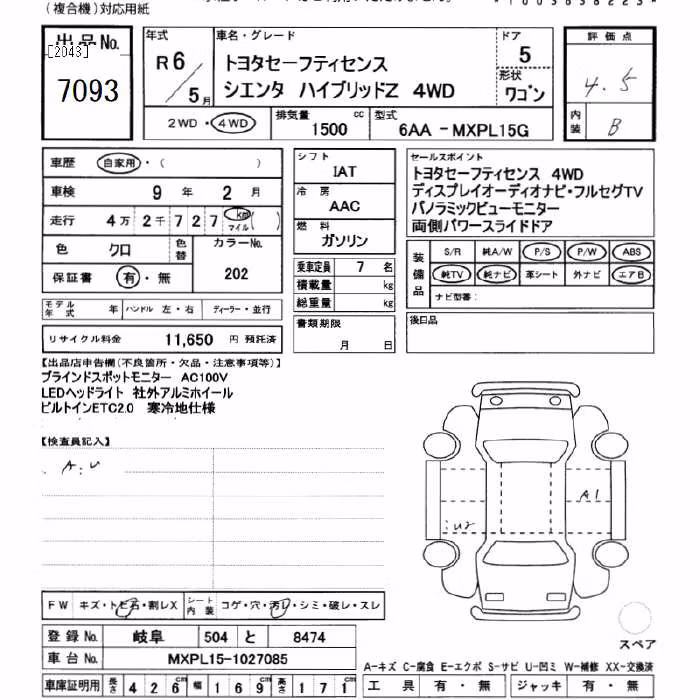 (複合機)対応用紙
出品No.
[2043]
7093
年式
R6/5月
車名・グレード
トヨタセーフティセンス
シエンタ ハイブリッドZ 4WD
ドア
5
形状
ワゴン
評価点
4.5
内装
B
2WD・4WD
排気量
1500 cc
型式
6AA -MXPL15G
車歴 自家用・( )
車検 9年 2月
走行 4万2千727 km マイル( )
色 クロ
色替
カラーNo.
202
保証書 有・無
モデル年式 年
ハンドル 左・右
ディーラー・並行
リサイクル料金 11,650 円 預託済
シフト
IAT
冷房
AAC
燃料
ガソリン
乗車定員 7名
積載量 kg
総重量 kg
書類期限
月 日
セールスポイント
トヨタセーフティセンス 4WD
ディスプレイオーディオナビ・フルセグTV
パノラミックビューモニター
両側パワースライドドア
装備品
S/R 純A/W P/S P/W ABS
純TV 純ナビ 革シート 外ナビ エアB
ナビ型番:
後日品
【出品店申告欄(不良箇所・欠品・注意事項等)】
ブラインドスポットモニター AC100V
LEDヘッドライト 社外アルミホイール
ビルトインETC2.0 寒冷地仕様
【検査員記入】
A:U
A1
:U2
FW キズ・トビ石・割レX
シート内装 コゲ・穴・汚レ・シミ・破レ・スレ
登録No. 岐阜 504 と 8474
車台No. MXPL15-1027085
スペア
A-キズ C-腐食 E-エクボ S-サビ U-凹ミ W-補修 XX-交換済
車庫証明用 長さ 426cm 幅 169cm 高さ 171
工具 有・無 ジャッキ 有・無